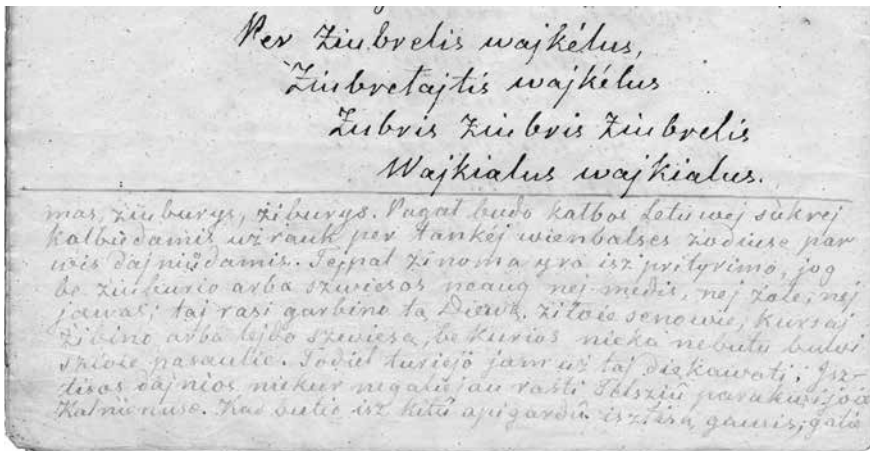 Per Ziubrelis wajkélus,
Ziubretajtis wajkélus
Zubris Ziubris Ziubrelis
Wajkialus wajkialus.
mas, ziuburys, żiburys. Pagal budo kalbos Letuwej sùkrej
kalbùdamis użrauk per tankéj wienbalses żodiuse par
wis dajniůdamis. Tejpal żinoma yra isz prityrimo, jog
be ziuburio arba szwiesos neaug nej medis, nej żole, nej
jawas; taj rasi garbino tą Diewą, żiłoie senowie, kursaj
żibino arba lejdo szwiesą, be kurios nieka nebutu buwi
szioie pasaulie. Todiel turiejo jam uż taj diekawoti; Jsz-
tisos dajnios niekur negaliejau rasti Telsziû parakwijoie
Kalnienuse. Kad butie isz kitû apigardû isztisą gawis, galie